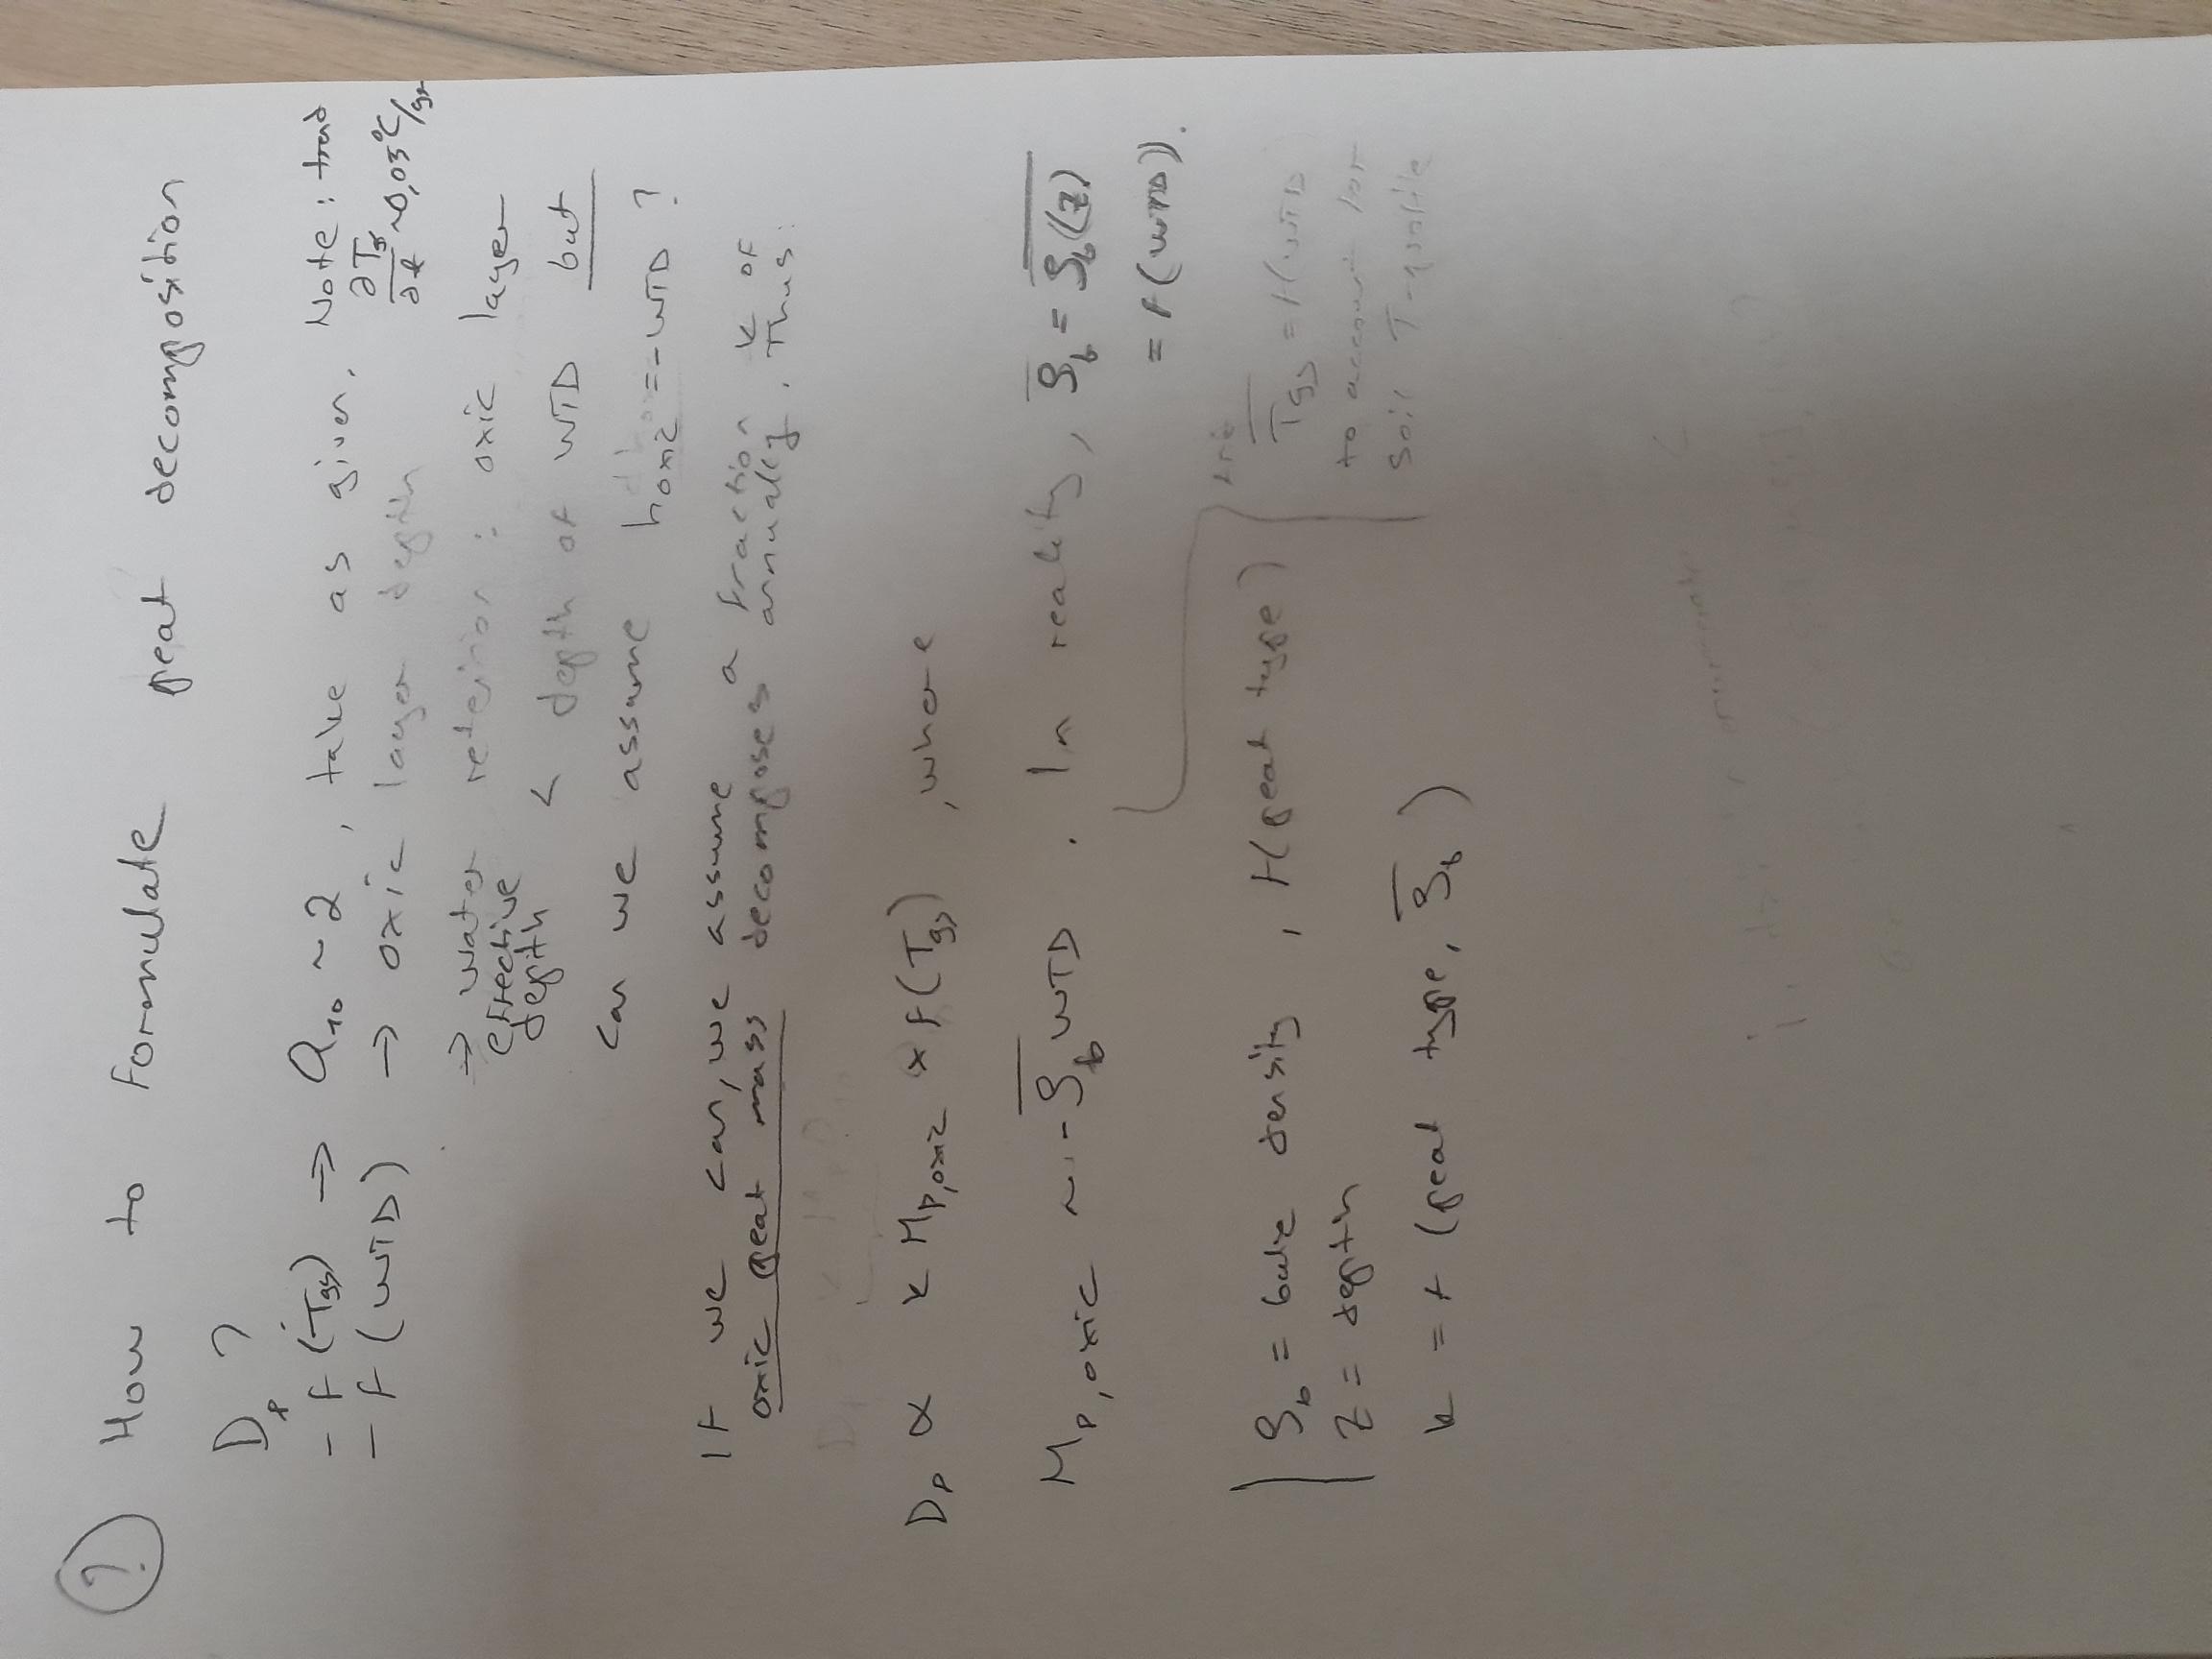 ? How to formulate peat decomposition
Dp ?
- f(Tgs) → Q10 ~ 2, take as given. Note: trend
- f(WTD) → oxic layer depth ∂Tgs/∂t ~0,05°C/yr
→ water retention: oxic layer
effective
depth < depth of WTD but
can we assume hoxic = -WTD ?
If we can, we assume a fraction k of
oxic peat mass decomposes annually. Thus:
Dp ∝ k Mp,oxic × f(Tgs), where
Mp,oxic ~ -ρ̅b WTD. In reality, ρ̅b = ρb(z)
= f(WTD).
ρb = bulk density, f(peat type)
z = depth
k = f(peat type, ρ̅b)
T̅gs = f(WTD
to account for
soil T-profile